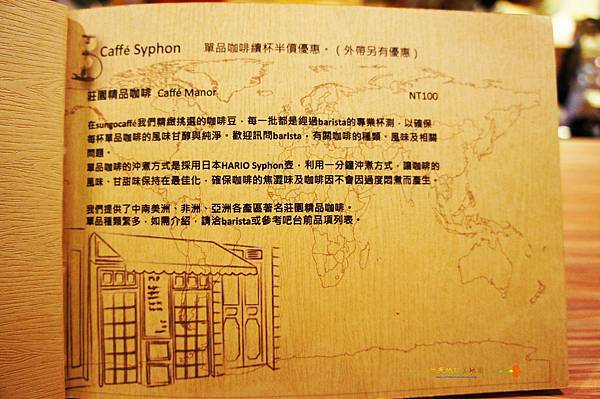 Caffé Syphon 單品咖啡續杯半價優惠。（外帶另有優惠）
莊園精品咖啡 Caffé Manor NT100
在sungocaffé我們精緻挑選的咖啡豆，每一批都是經過barista的專業杯測，以確保
每杯單品咖啡的風味甘醇與純淨。歡迎訊問barista，有關咖啡的種類、風味及相關
問題。
單品咖啡的沖煮方式是採用日本HARIO Syphon壺，利用一分鐘沖煮方式，讓咖啡的
風味、甘甜味保持在最佳化，確保咖啡的焦澀味及咖啡因不會因過度悶煮而產生。
我們提供了中南美洲、非洲、亞洲各產區著名莊園精品咖啡。
單品種類繁多，如需介紹，請洽barista或參考吧台前品項列表。